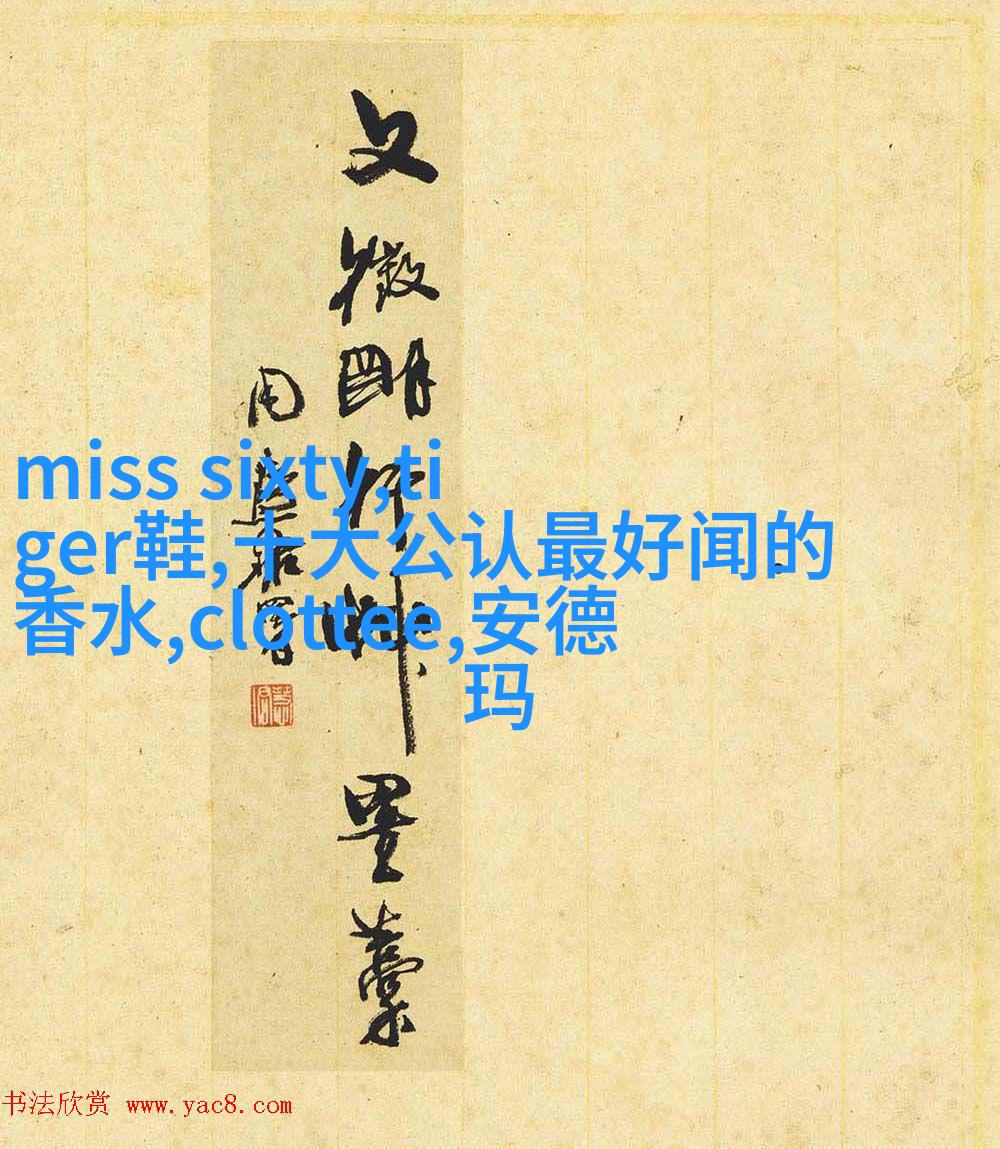 文徵明
墨藁
miss sixty,ti
ger鞋,十大公认最好闻的
香水,clottee,安德
玛
书法欣赏 www.yac8.com